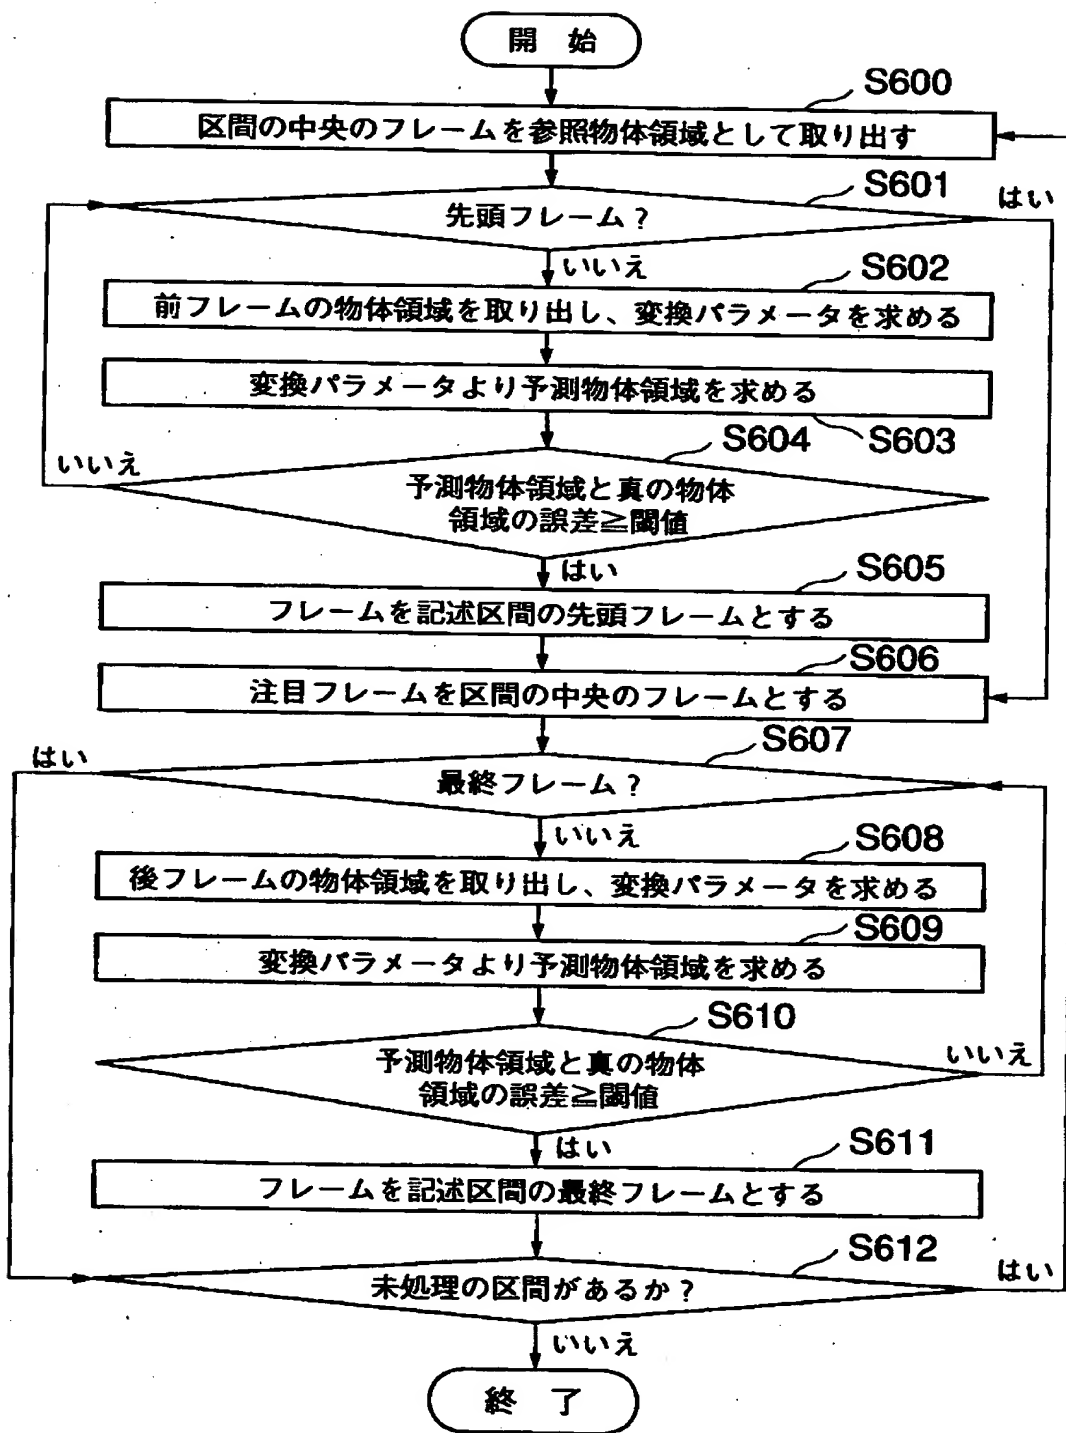 開 始
S600
区間の中央のフレームを参照物体領域として取り出す
S601
先頭フレーム？
はい
いいえ
S602
前フレームの物体領域を取り出し、変換パラメータを求める
変換パラメータより予測物体領域を求める
S603
S604
いいえ
予測物体領域と真の物体
領域の誤差≧閾値
はい
S605
フレームを記述区間の先頭フレームとする
S606
注目フレームを区間の中央のフレームとする
S607
はい
最終フレーム？
いいえ
S608
後フレームの物体領域を取り出し、変換パラメータを求める
S609
変換パラメータより予測物体領域を求める
S610
予測物体領域と真の物体
領域の誤差≧閾値
いいえ
はい
S611
フレームを記述区間の最終フレームとする
S612
未処理の区間があるか？
はい
いいえ
終 了